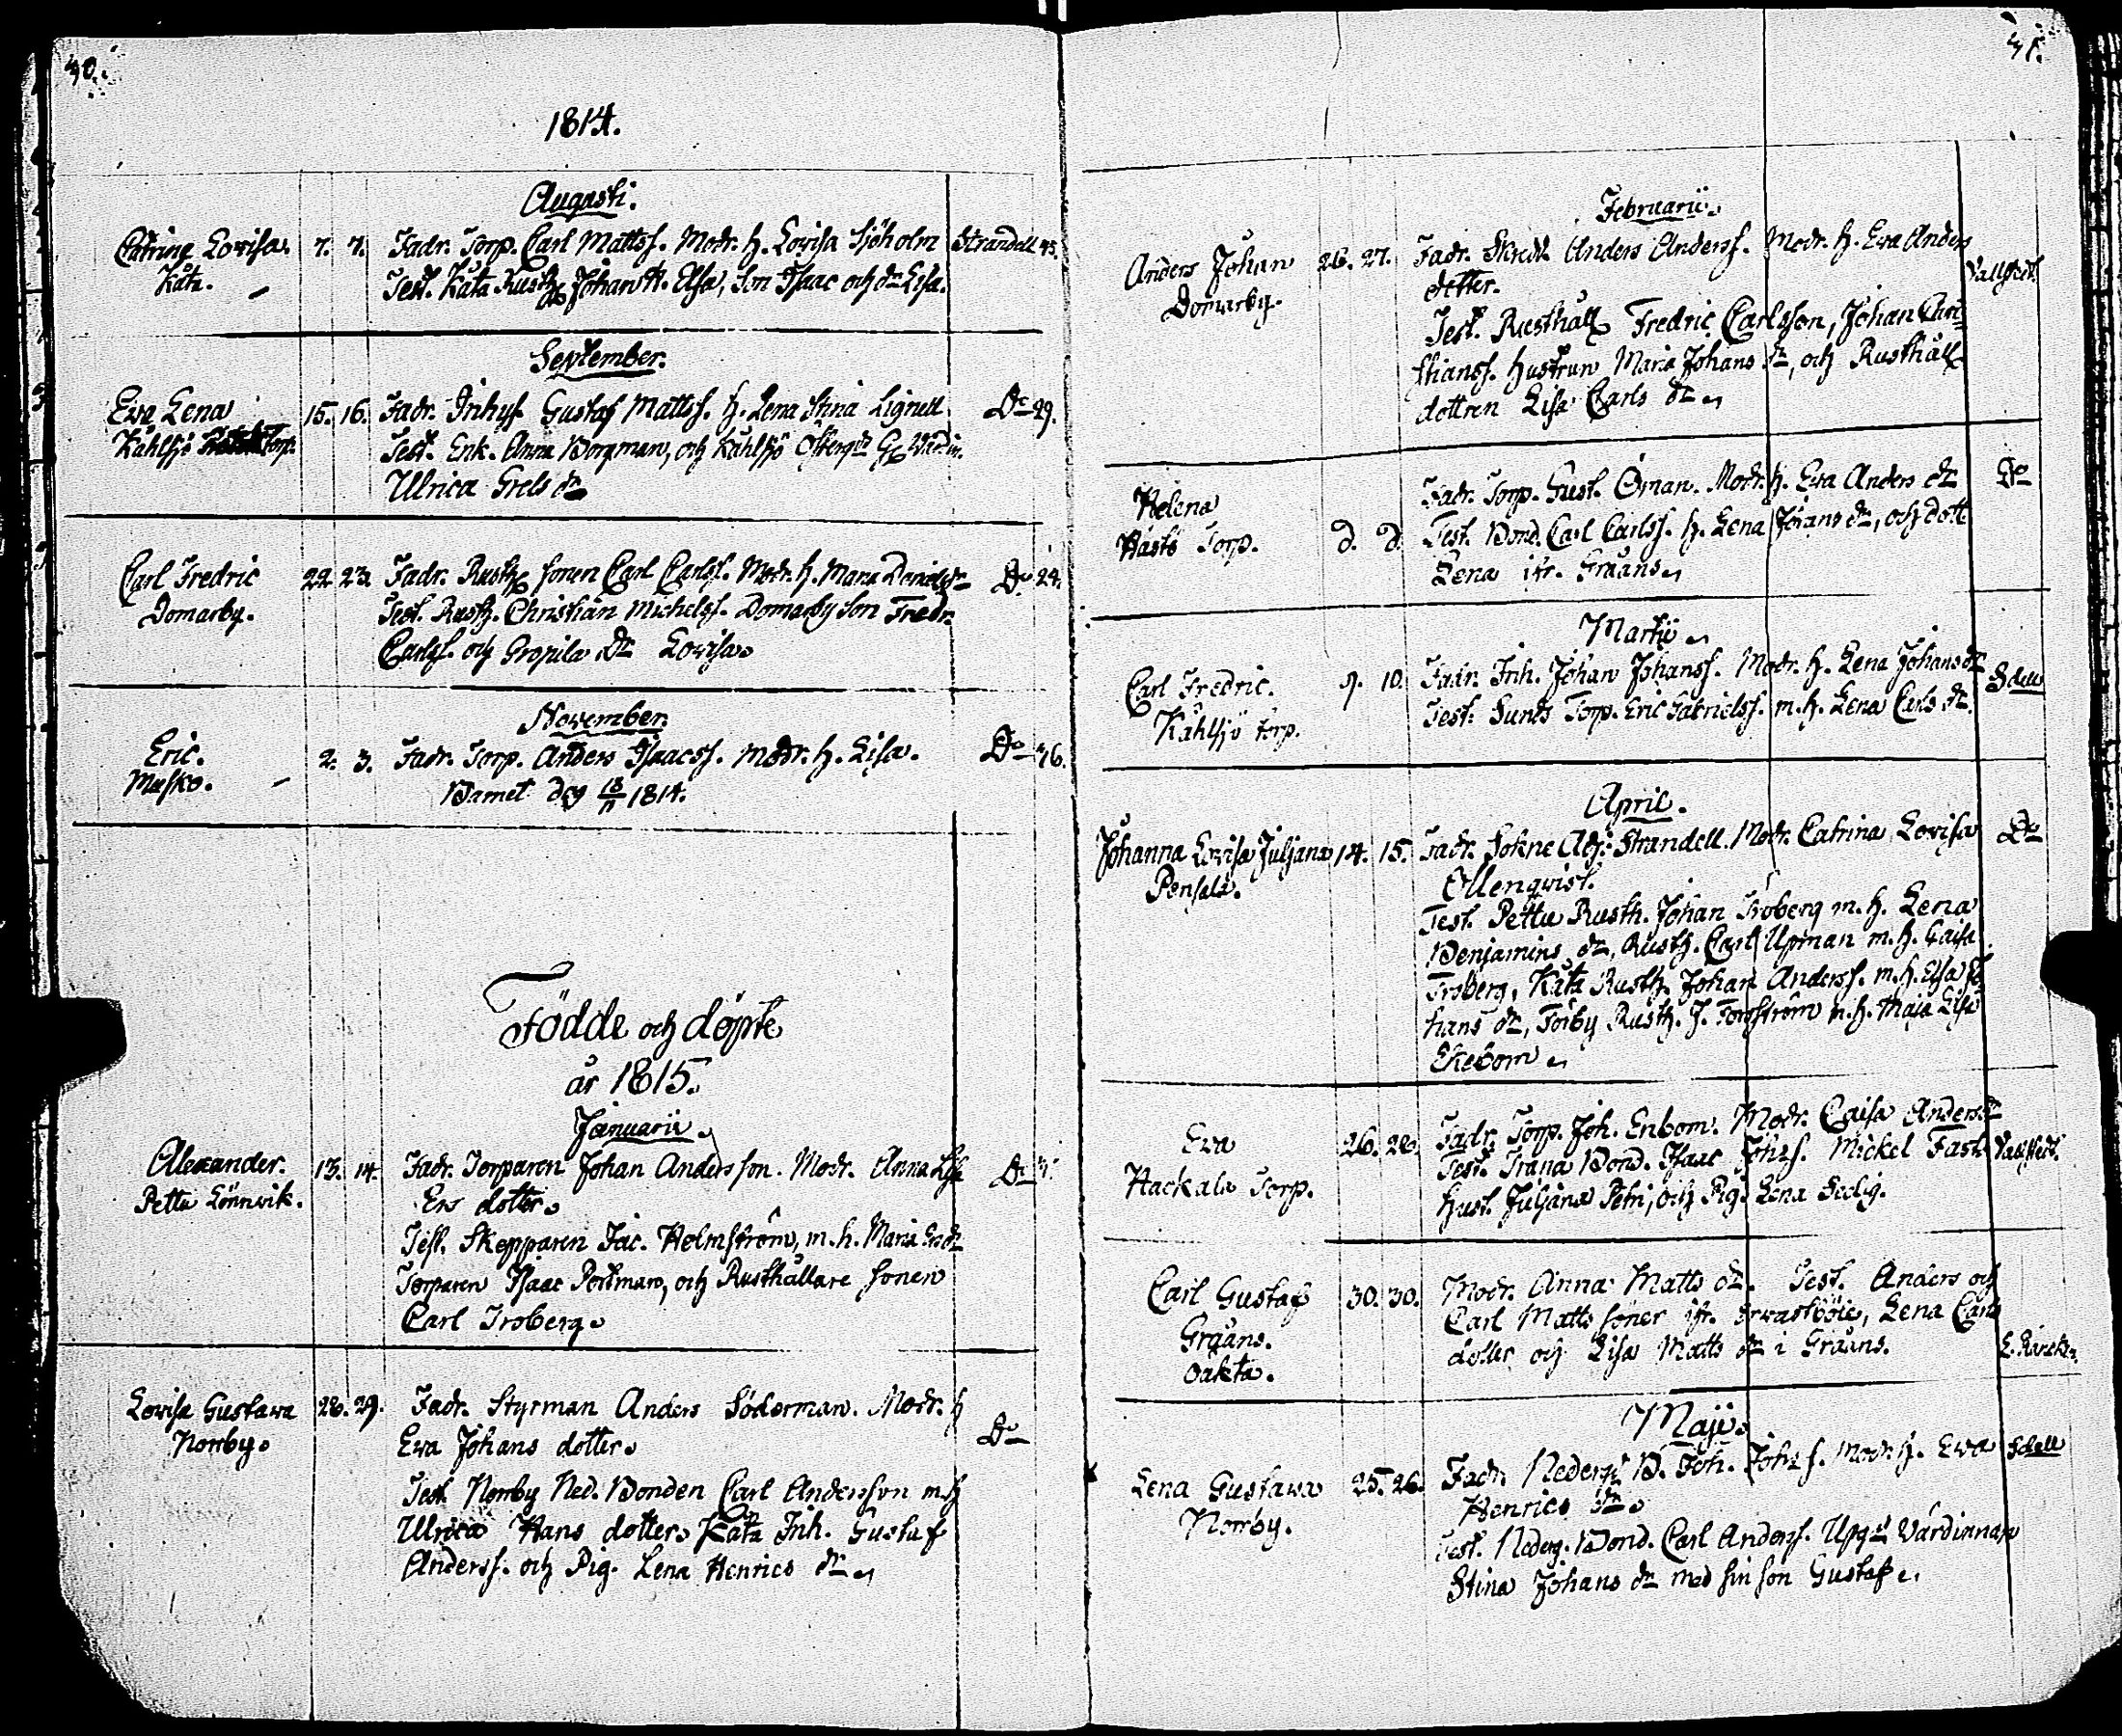 40.
1814.
Augusti.
Catrina Lovisa. 7. 7. Fadr. Torp. Carl Mattss. Modr. h. Lovisa Sjöholm Strandell 43.
Kåta. Test. Kåta Rusth. Johan A. Elsa, Son Isaac och dr Lisa.
September.
Eva Lena 15. 16. Fadr. Inhys. Gustaf Mattss. h. Lena Stina Lignell Do 29.
Kåhlsjö Torp. Test. Enk. Anna Borgman, och Kåhlsjö
Ulrica Grels dr
Carl Fredric 22. 23. Fadr. Rusth. sonen Carl Carlss. Modr. h. Maria Daniels dr Do 24.
Domarby. Test. Rusth. Christian Michelss. Domarby Son Fredr.
Carlss. och Gropila Dr Lovisa
November.
Eric. 2. 3. Fadr. Torp. Anders Isaacss. Modr. h. Lisa. Do 36.
Musko. Barnet 1814.
Födde och döpte
år 1815.
Januarii
Alexander. 13. 14. Fadr. Torparen Johan Andersson. Modr. Anna Lisa Do
Pettu Lönnvik. Ers dotter.
Test. Skepparen Jac. Holmström, m. h. Maria Ers dr
Torparen Isaac Portman, och Rusthållare sonen
Carl Froberg.
Lovisa Gustava 28. 29. Fadr. Styrman Anders Söderman. Modr. h
Norrby. Eva Johans dotter. Do
Test. Norrby Ned. Bonden Carl Andersson m. h
Ulrica Hans dotter. Kåta Inh. Gustaf
Anderss. och Pig. Lena Henrics dr
41.
Februarii.
Anders Johan 26. 27. Fadr. Anders Anderss. Modr. h. Eva Anders
Domarby. dotter. Vallstedt.
Test. Rusthåll. Fredric Carlsson, Johan Chri-
stianss. hustrun Maria Johans dr, och Rusthåll.
dottren Lisa Carls dr
Helena Fadr. Torp. Gust. Öman. Modr. h. Eva Anders dr Do
Hästö Torp. d. d. Test. Bond. Carl Carlss. h. Lena Johans dr, och dott.
Lena ifr. Gråäns
Martii
Carl Fredric. 9. 10. Fadr. Inh. Johan Johanss. Modr. h. Lena Johans dr Sdell
Kåhlsjö torp. Test. Sunds Torp. Eric Gabrielss. m. h. Lena Carls dr.
April.
Johanna Lovisa Juljana 14. 15. Fadr. Sokne Adj. Strandell. Modr. Catrina Lovisa Do
Pensala. Ollenqvist.
Test. Pettu Rusth. Johan Froberg m. h. Lena
Benjamins dr, Rusth. Carl Upman m. h. Caisa
Froberg, Kåta Rusth. Johan Anderss. m. h. Elsa Jo-
hans dr, Torby Rusth. J. Forsström m. h. Maja Lisa
Ekebom
Eva 26. 28. Fadr. Torp. Joh. Enbom. Modr. Caisa Anders dr
Hackala Torp. Test. Trana Bond. Isaac Johss. Mickel Fast Vallstedt.
hust. Juljana Petri, och Pig. Lena Sedig.
Carl Gustaf 30. 30. Modr. Anna Matts dr. Test. Anders och
Gråäns. Carl Matts söner ifr. Lena Carls
oäkta. dotter och Lisa Matts dr i Gråäns.
Maji.
Lena Gustava 25. 26. Fadr. Nederg. B. Joh. Johss. Modr. h. Eva Sdell
Norrby. Henrics dr.
Test. Nederg. Bond. Carl Anderss. Upg. Värdinnan
Stina Johans dr med sin son Gustaf.